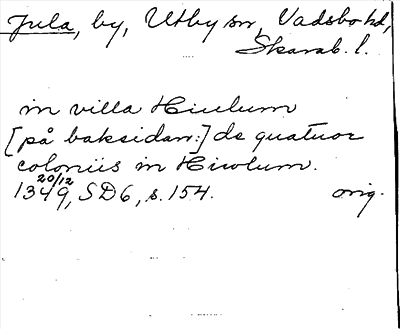 Jula, by, Utby sn, Vadsbo hd,
Skarab. l.
in villa Hiulum
[på baksidan:] de quatuor
coloniis in Hiwlum.
20/12
1349, SD6, s. 154. orig.